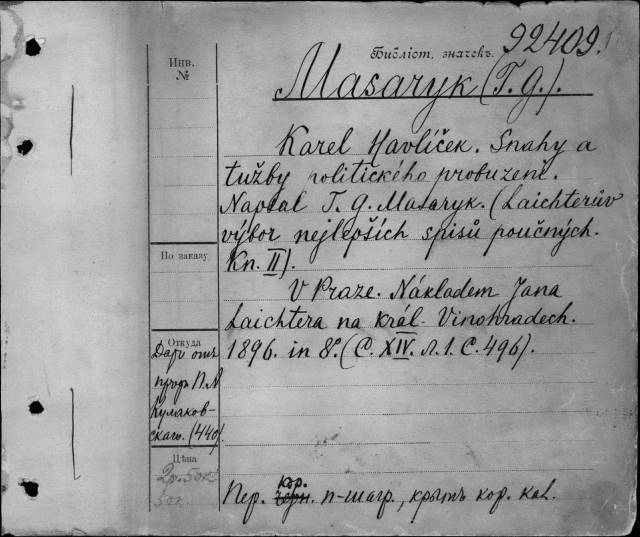 Инв.
№
Библіот. значекъ. 92409.
Masaryk (T. G.).
Karel Havlíček. Snahy a
tužby politického probuzení.
Napsal T. G. Masaryk. (Laichterův
výbor nejlepších spisů poučných.
Kn. II).
По заказу
V Praze. Nákladem Jana
Laichtera na král. Vinohradech.
1896. in 8º. (С. XIV. л. 1. С. 496).
Откуда
Даръ отъ
проф. П. А.
Кулаков-
скаго. (440).
Цѣна
2р. 50к.
50к.
кор.
Пер. черн. п-шагр., крытъ кор. кол.